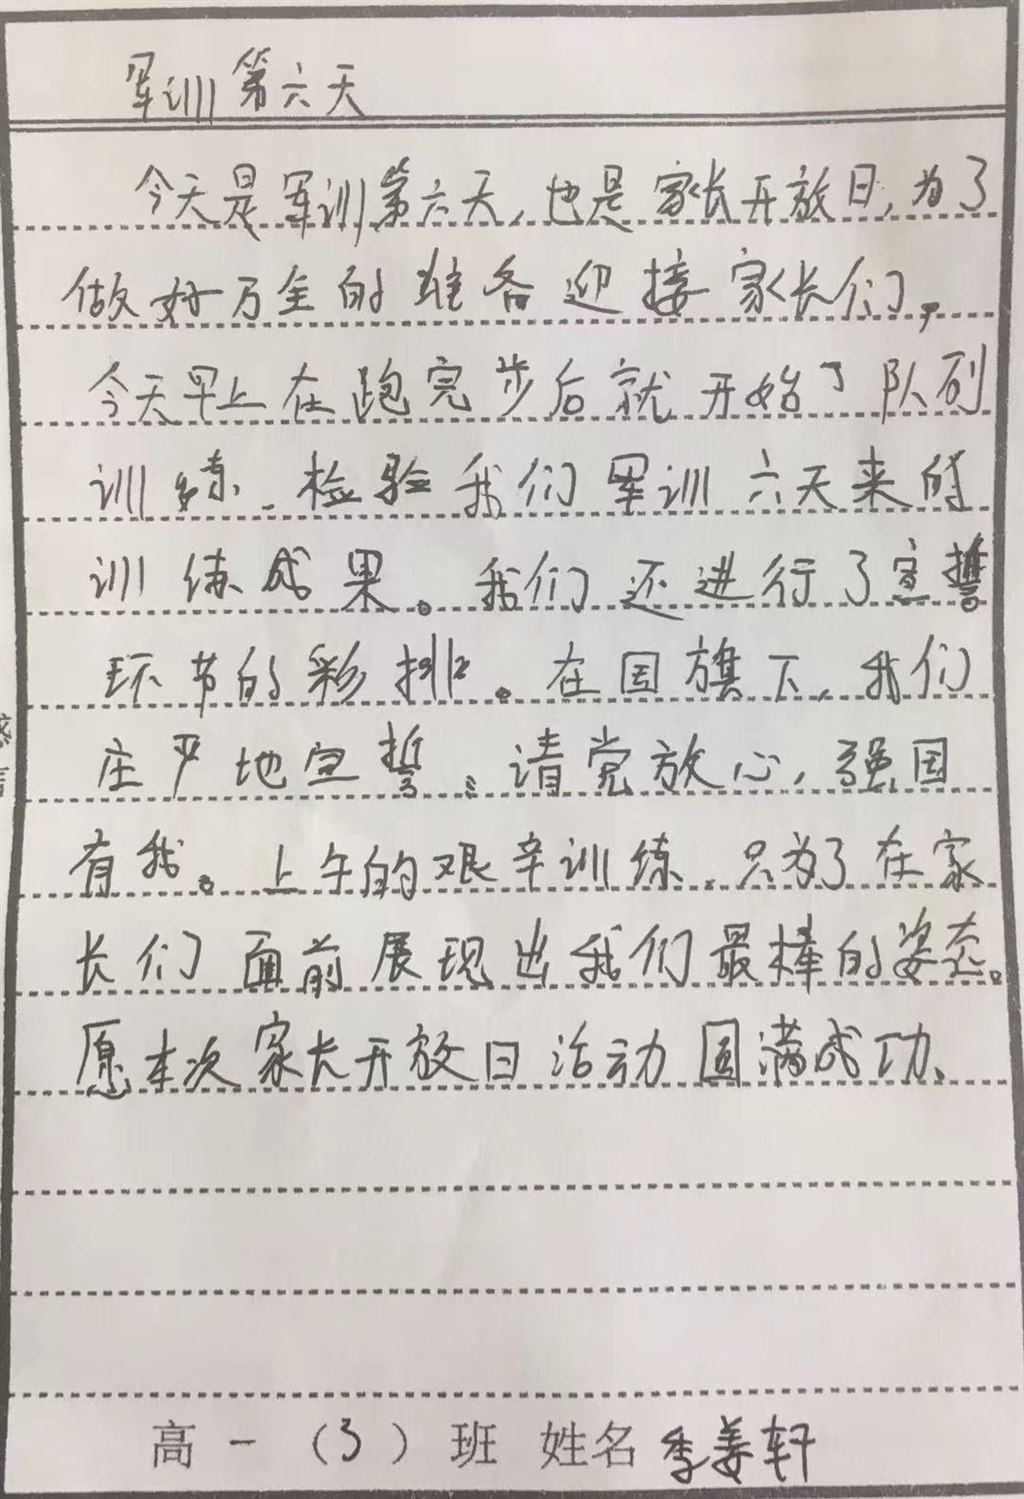 军训第六天
今天是军训第六天,也是家长开放日,为了
做好万全的准备迎接家长们,
今天早上在跑完步后就开始了队列
训练,检验我们军训六天来的
训练成果。我们还进行了宣誓
环节的彩排。在国旗下,我们
庄严地宣誓:请党放心,强国
有我。上午的艰辛训练,只为了在家
长们面前展现出我们最棒的姿态。
愿本次家长开放日活动圆满成功、
高一(3)班 姓名 季姜轩